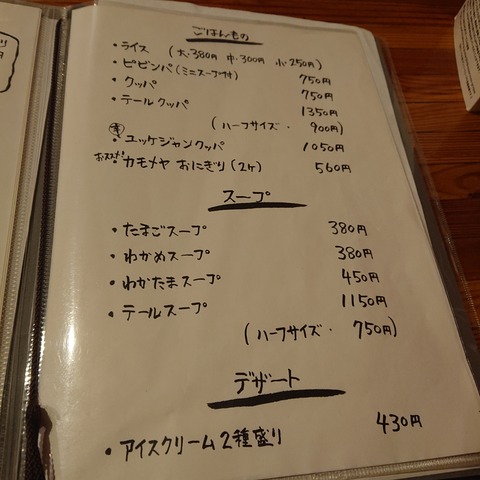 ごはんもの
・ライス (大・380円 中・300円 小・250円)
・ビビンバ(ミニスープ付) 750円
・クッパ 750円
・テールクッパ 1350円
(ハーフサイズ・ 900円)
・ユッケジャンクッパ 1050円
おススメ! カモメヤ おにぎり(2ヶ) 560円
スープ
・たまごスープ 380円
・わかめスープ 380円
・わかたまスープ 450円
・テールスープ 1150円
(ハーフサイズ・ 750円)
デザート
・アイスクリーム2種盛り 430円